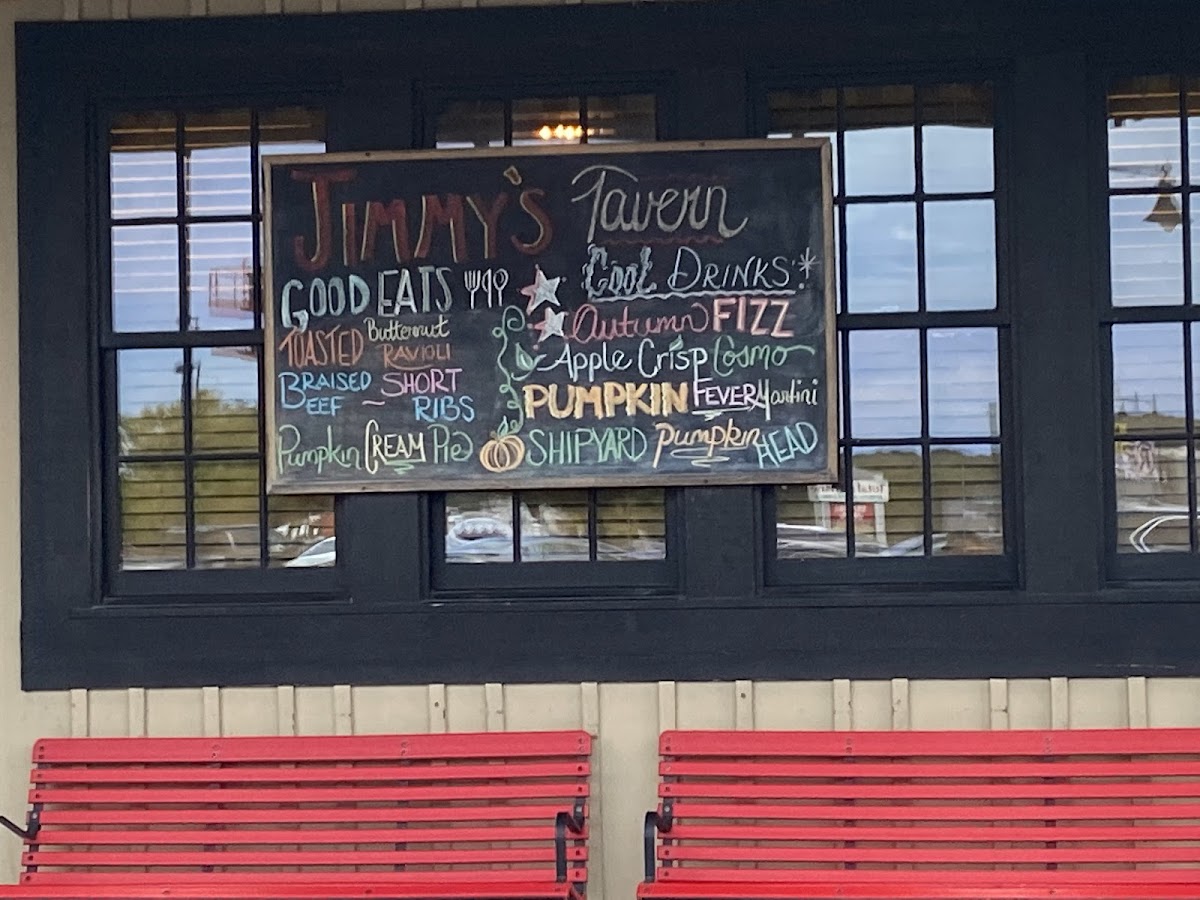 JIMMY'S Tavern
GOOD EATS
TOASTED Butternut RAVIOLI
BRAISED BEEF ~ SHORT RIBS
Pumpkin CREAM Pie
Cool DRINKS!
Autumn FIZZ
Apple Crisp Cosmo
PUMPKIN FEVER Martini
SHIPYARD Pumpkin HEAD